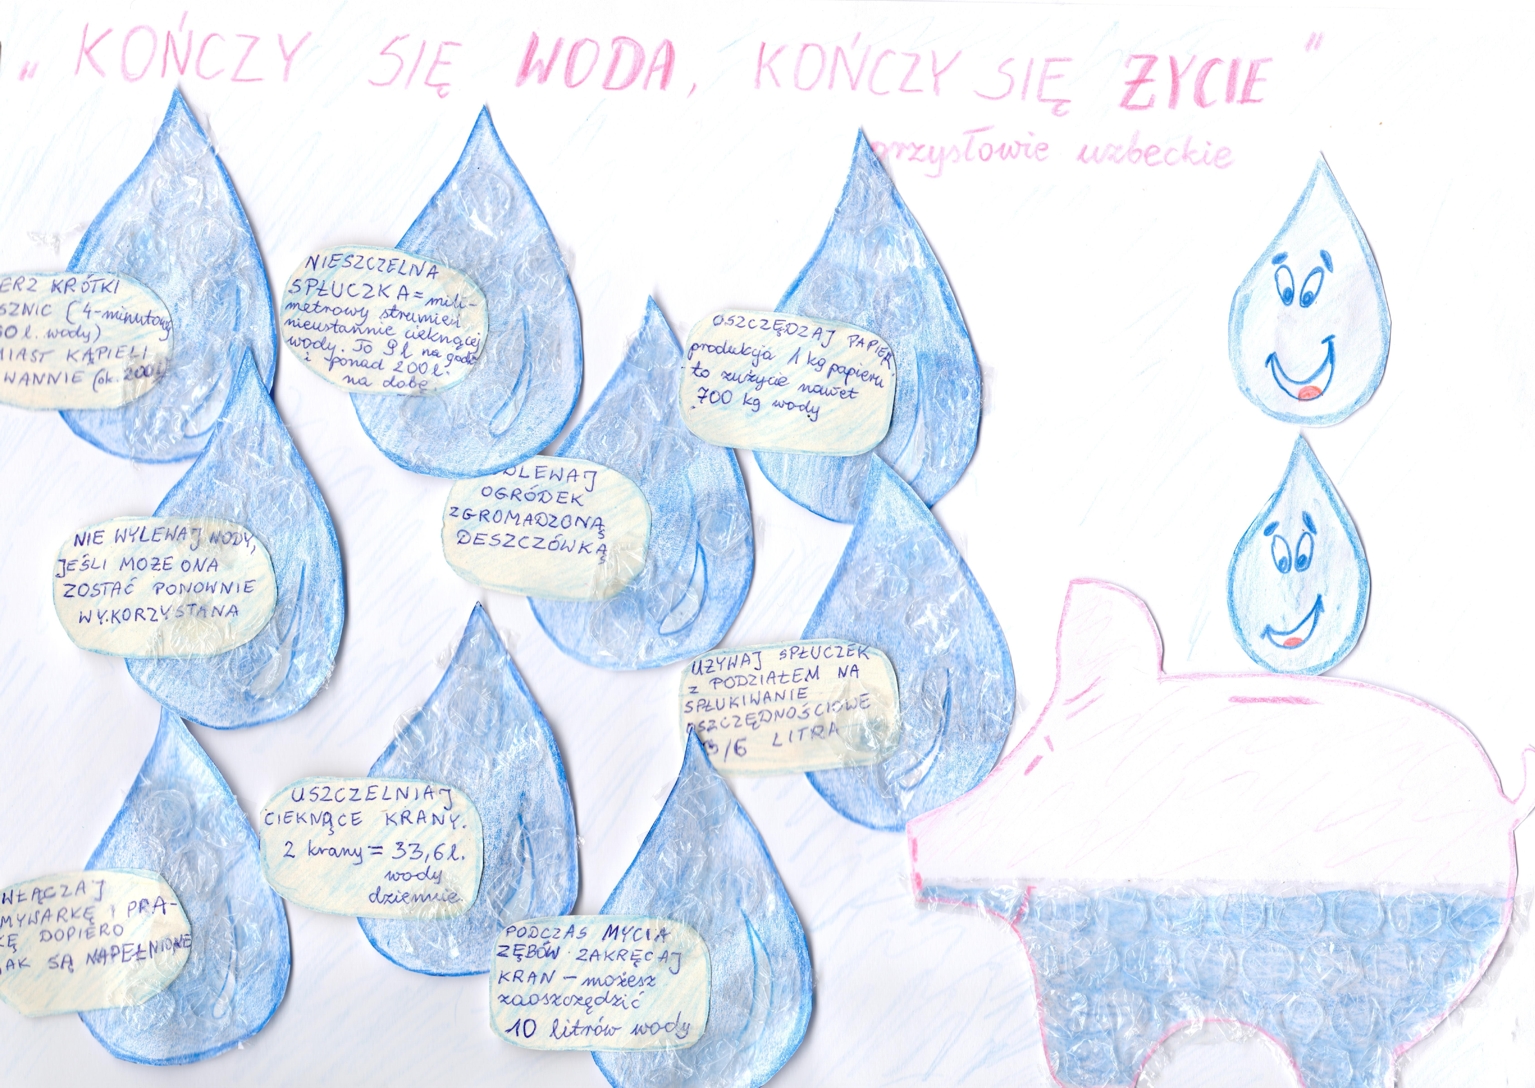 „KOŃCZY SIĘ WODA, KOŃCZY SIĘ ŻYCIE"
przysłowie uzbeckie
KRÓTKI
(4-minutowy
l. wody)
KĄPIELI
WANNIE (ok. 200l.
NIESZCZELNA
SPŁUCZKA = mili-
metrowy strumień
nieustannie cieknącej
wody. To 9l na godz
i ponad 200l.
na dobę
OSZCZĘDZAJ PAPIER
produkcja 1 kg papieru
to zużycie nawet
700 kg wody
DLEWAJ
OGRÓDEK
ZGROMADZONĄ
DESZCZÓWKĄ
NIE WYLEWAJ WODY,
JEŚLI MOŻE ONA
ZOSTAĆ PONOWNIE
WYKORZYSTANA
UŻYWAJ SPŁUCZEK
Z PODZIAŁEM NA
SPŁUKIWANIE
OSZCZĘDNOŚCIOWE
3/6 LITRA
USZCZELNIAJ
CIEKNĄCE KRANY.
2 krany = 33,6l.
wody
dziennie
WŁĄCZAJ
MYWARKĘ I PRA-
KĘ DOPIERO
JAK SĄ NAPEŁNIONE
PODCZAS MYCIA
ZĘBÓW ZAKRĘCAJ
KRAN – możesz
zaoszczędzić
10 litrów wody